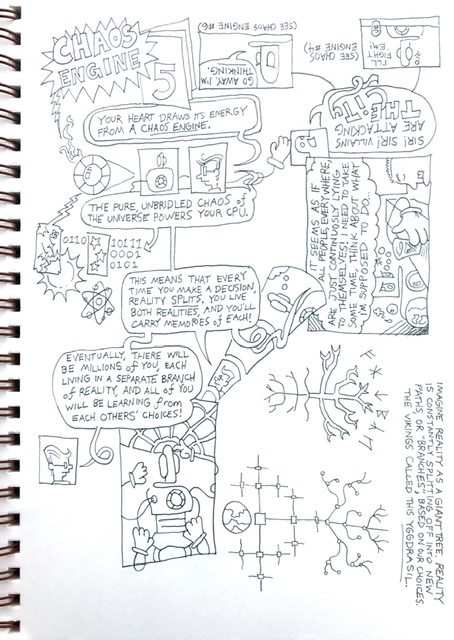 CHAOS
ENGINE
5
YOUR HEART DRAWS ITS ENERGY
FROM A CHAOS ENGINE.
THE PURE, UNBRIDLED CHAOS of
THE UNIVERSE POWERS YOUR CPU.
0110
10111
0001
0101
THIS MEANS THAT EVERY
TIME YOU MAKE A DECISION,
REALITY SPLITS. YOU LIVE
BOTH REALITIES, AND YOU'LL
CARRY MEMORIES OF EACH!
EVENTUALLY, THERE WILL
BE MILLIONS of YOU, EACH
LIVING IN A SEPARATE BRANCH
of REALITY, AND ALL OF YOU
WILL BE LEARNING from
EACH OTHERS' CHOICES!
IMAGINE REALITY AS A GIANT TREE. REALITY
IS CONSTANTLY SPLITTING OFF INTO NEW
PATHS, OR "BRANCHES", BASED ON OUR CHOICES.
THE VIKINGS CALLED THIS YGGDRASIL.
IT SEEMS AS IF
ALL PEOPLE, EVERYWHERE,
ARE JUST CONTINUOUSLY LYING
TO THEMSELVES! I NEED TO TAKE
SOME TIME, THINK ABOUT WHAT
I'M SUPPOSED TO DO...
SIR! VILLAINS
ARE ATTACKING
THE
CITY!
I'LL
FIGHT
'EM!
(SEE CHAOS
ENGINE #4)
GO AWAY, I'M
THINKING.
(SEE CHAOS ENGINE #6)